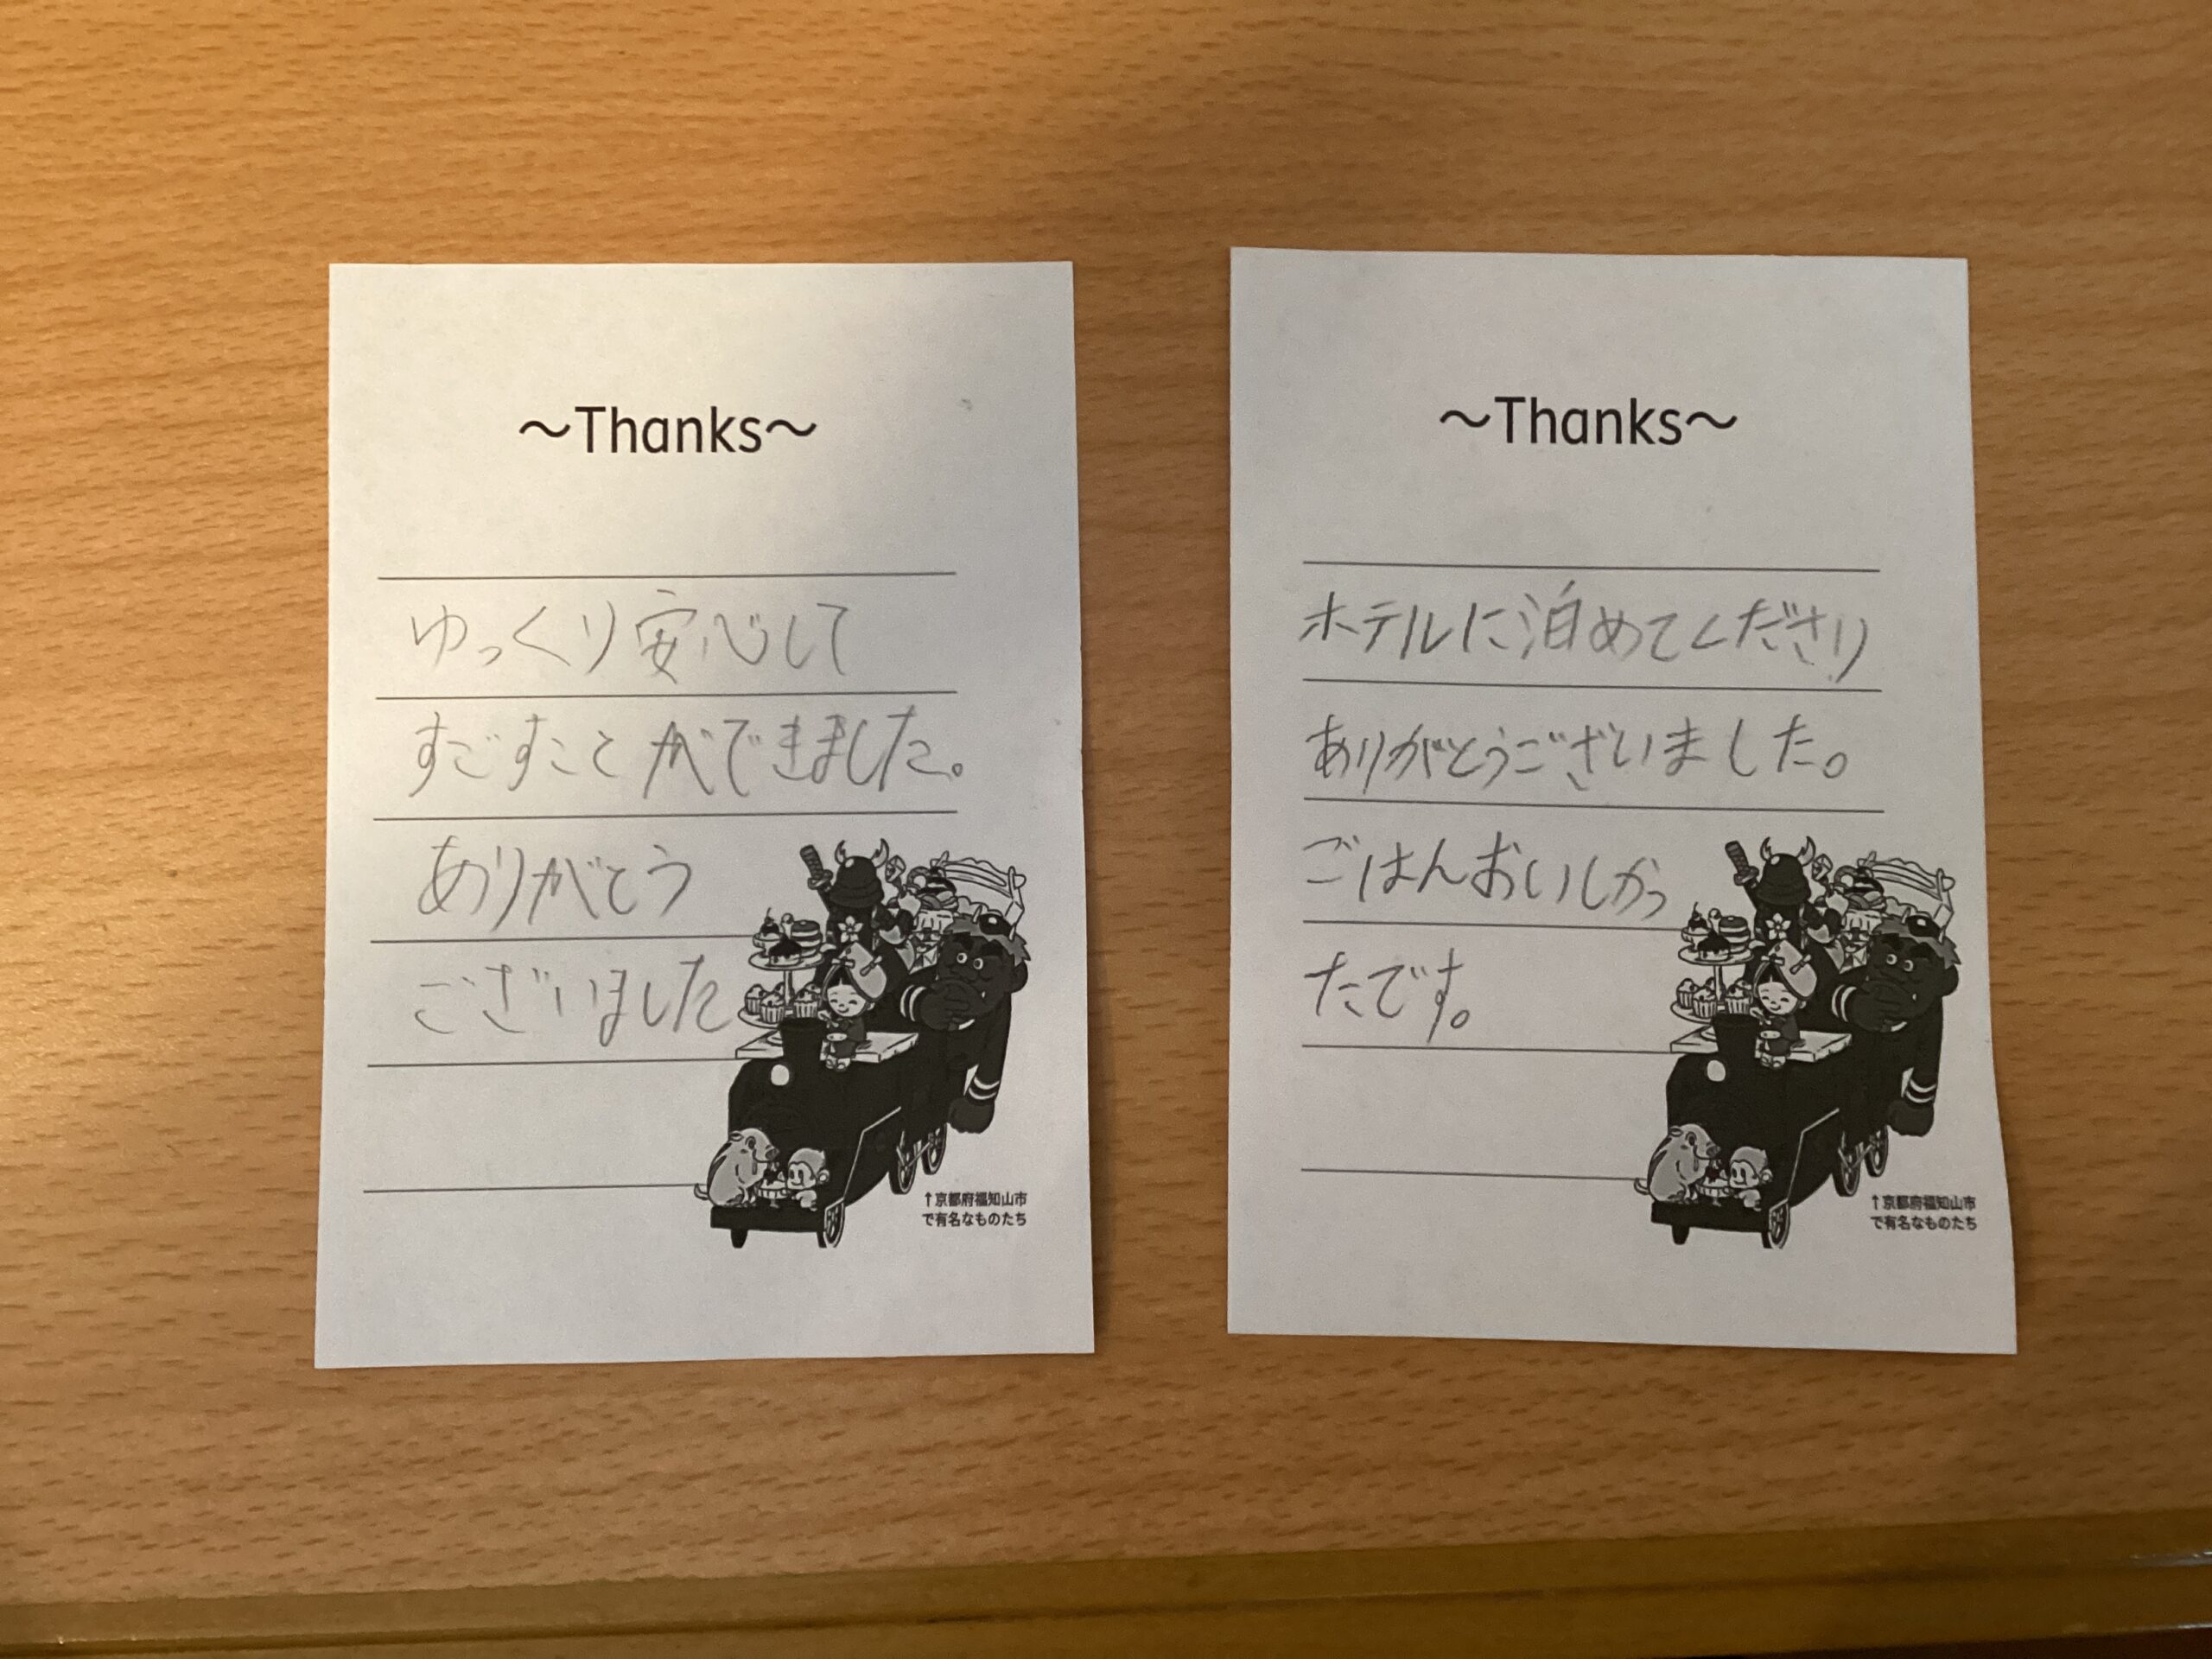 〜Thanks〜
ゆっくり安心して
すごすことができました。
ありがとう
ございました
↑京都府福知山市
で有名なものたち
〜Thanks〜
ホテルに泊めてくださり
ありがとうございました。
ごはんおいしかっ
たです。
↑京都府福知山市
で有名なものたち